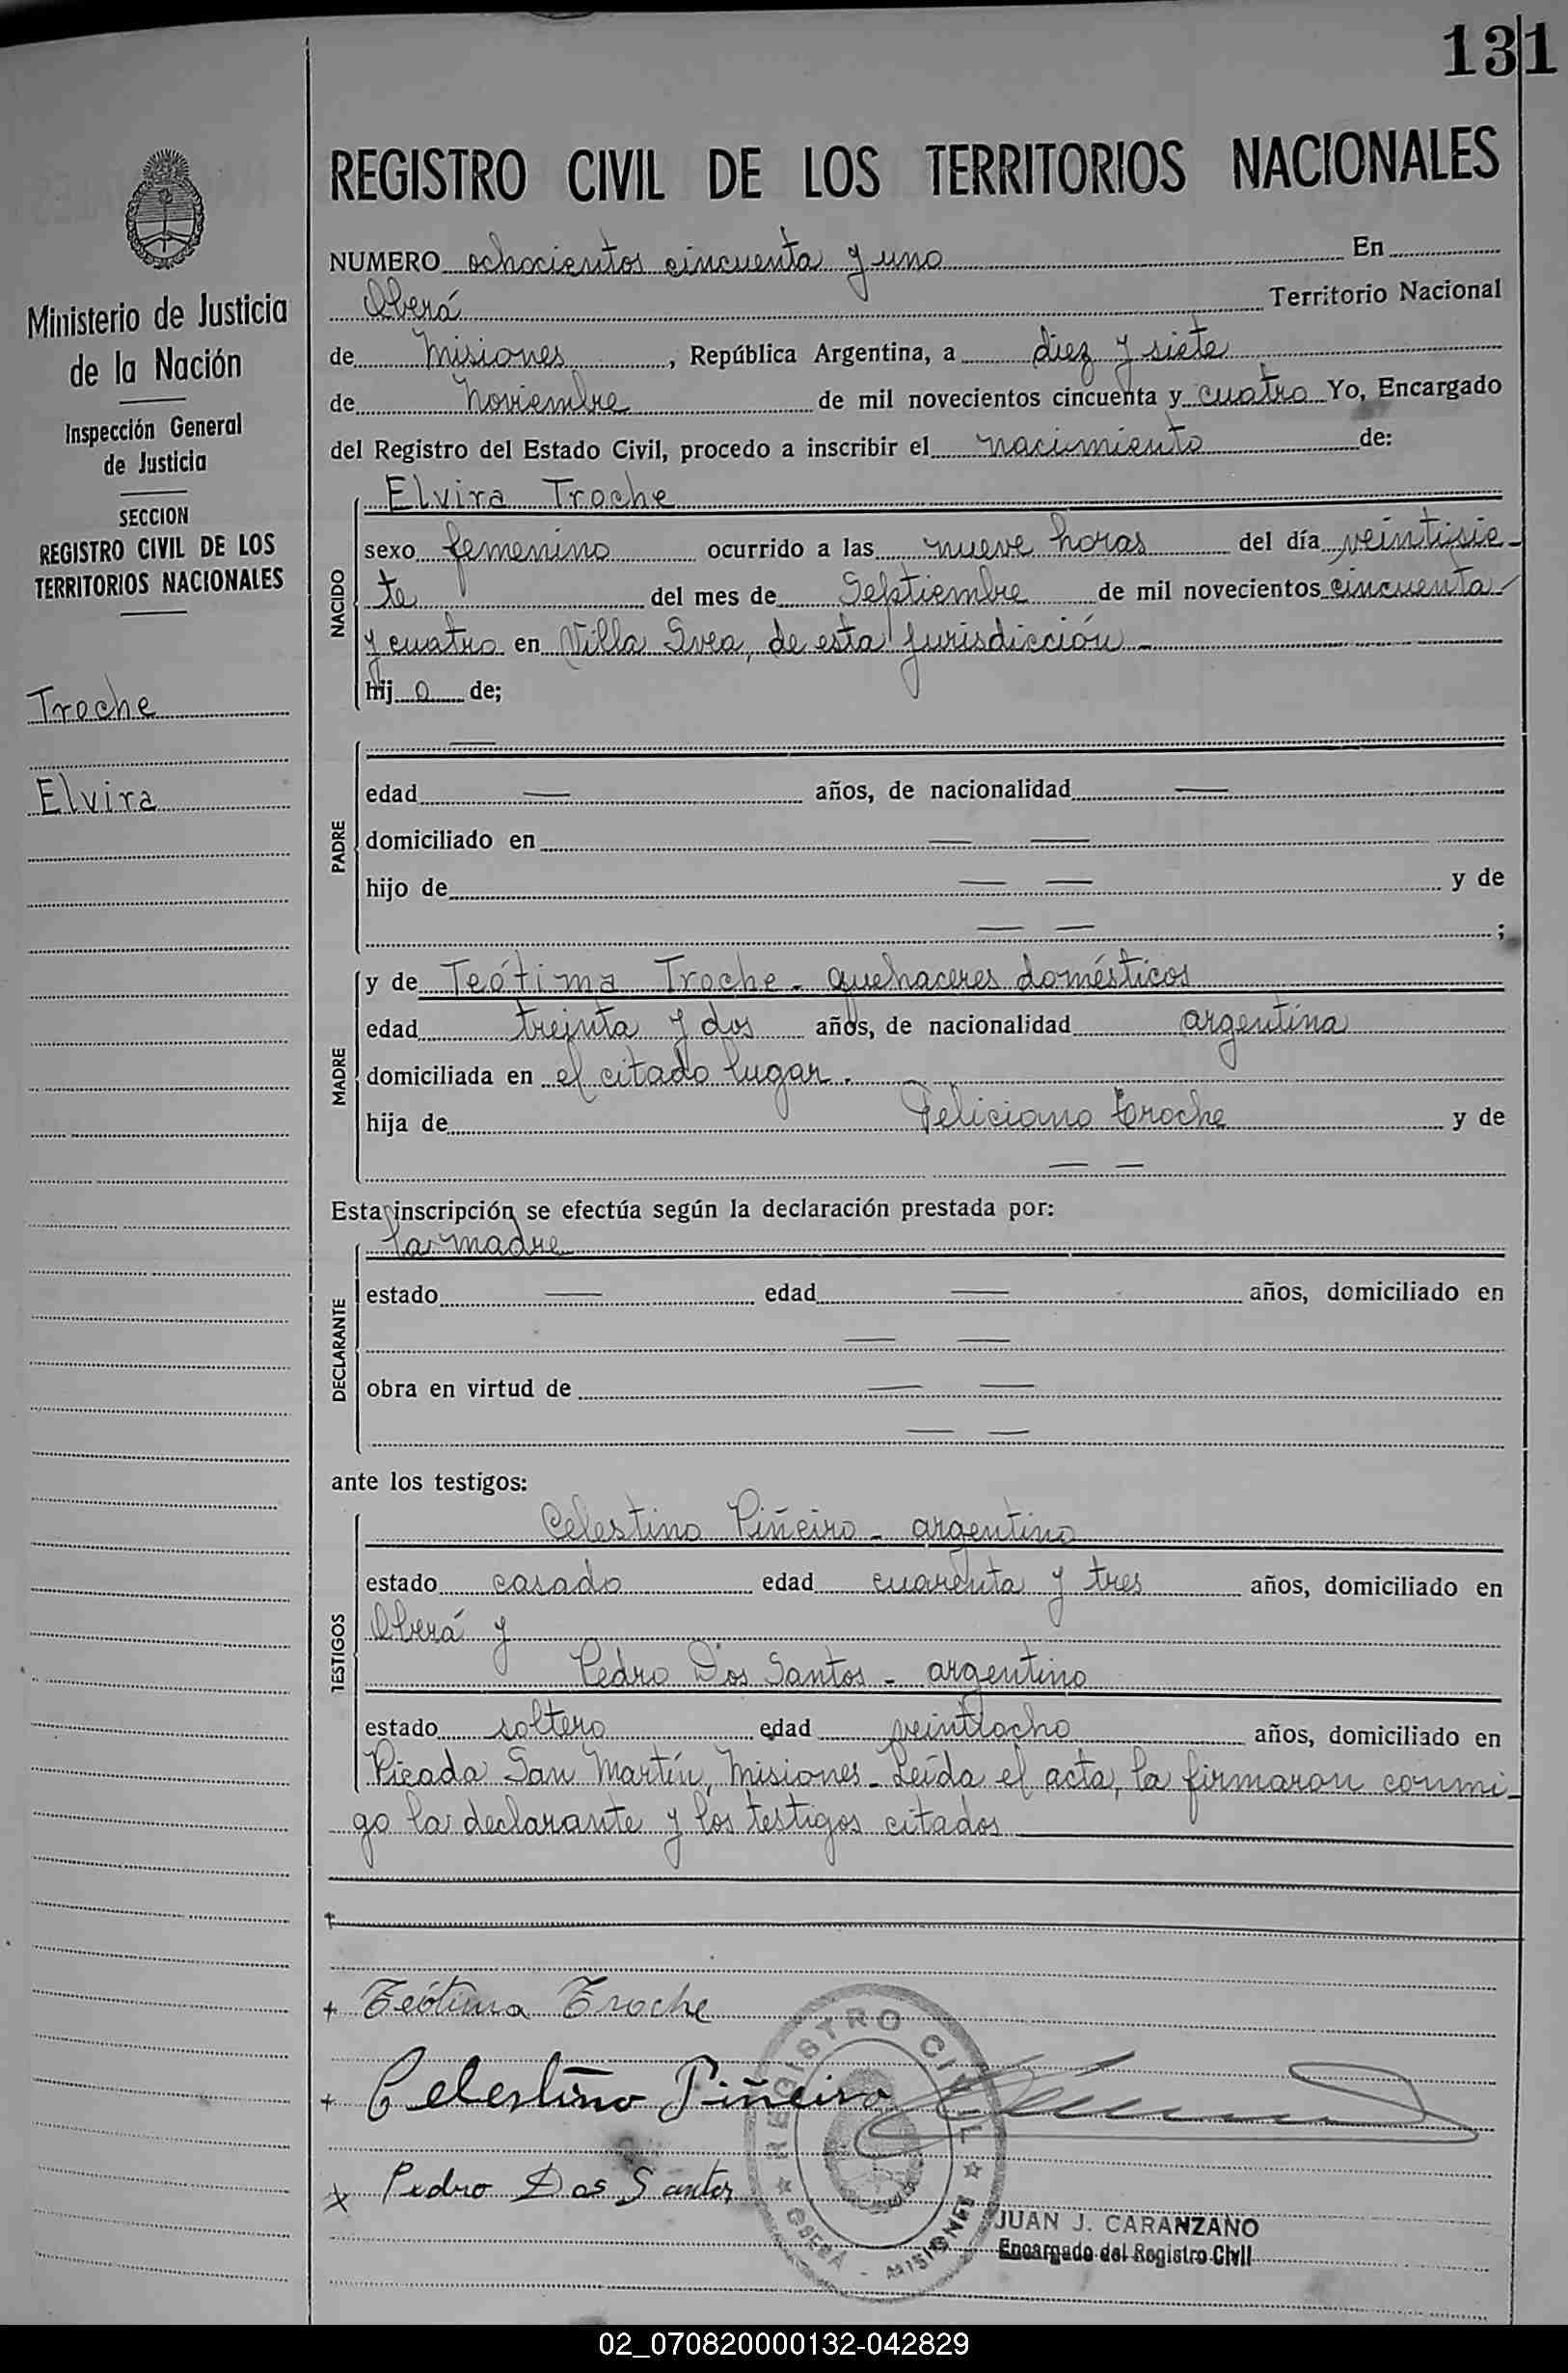 131
REGISTRO CIVIL DE LOS TERRITORIOS NACIONALES
Ministerio de Justicia
de la Nación
Inspección General
de Justicia
SECCION
REGISTRO CIVIL DE LOS
TERRITORIOS NACIONALES
Troche
Elvira
NUMERO ochocientos cincuenta y uno En
Oberá Territorio Nacional
de Misiones, República Argentina, a diez y siete
de Noviembre de mil novecientos cincuenta y cuatro Yo, Encargado
del Registro del Estado Civil, procedo a inscribir el nacimiento de:
NACIDO
Elvira Troche
sexo femenino ocurrido a las nueve horas del día veintisie-
te del mes de Septiembre de mil novecientos cincuenta
y cuatro en Villa Svea, de esta jurisdicción -
hij a de;
PADRE
—
edad — años, de nacionalidad —
domiciliado en — —
hijo de — — y de
— — ;
MADRE
y de Teótima Troche - quehaceres domésticos
edad treinta y dos años, de nacionalidad argentina
domiciliada en el citado lugar.
hija de Feliciano Troche y de
— —
Esta inscripción se efectúa según la declaración prestada por:
DECLARANTE
la madre
estado — edad — años, domiciliado en
— —
obra en virtud de — —
— —
ante los testigos:
TESTIGOS
Celestino Piñeiro - argentino
estado casado edad cuarenta y tres años, domiciliado en
Oberá y
Pedro Dos Santos - argentino
estado soltero edad veintiocho años, domiciliado en
Picada San Martín, Misiones - Leída el acta, la firmaron conmi-
go la declarante y los testigos citados
+ Teótima Troche
+ Celestino Piñeiro
x Pedro Dos Santos
REGISTRO CIVIL
OBERÁ - MISIONES
JUAN J. CARANZANO
Encargado del Registro Civil
02_070820000132-042829